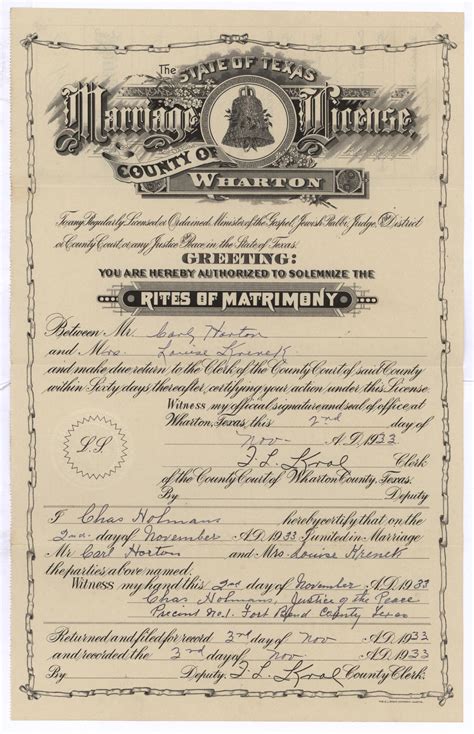 The STATE OF TEXAS
Marriage License
COUNTY OF
WHARTON
To any Regularly Licensed or Ordained Minister of the Gospel, Jewish Rabbi, Judge of District
or County Court, or any Justice of Peace in the State of Texas.
GREETING:
YOU ARE HEREBY AUTHORIZED TO SOLEMNIZE THE
RITES OF MATRIMONY
Between Mr. Carl Horton
and Mrs. Louise Krenek
and make due return to the Clerk of the County Court of said County
within Sixty days, thereafter, certifying your action under this License.
Witness my official signature and seal of office, at
Wharton, Texas, this 2nd day of
Nov- A.D. 1933
L.S.
F. L. Kral Clerk
of the County Court of Wharton County, Texas.
By Deputy
I Chas Holmans hereby certify that on the
2nd day of November A.D. 1933 I united in Marriage
Mr Carl Horton and Mrs Louise Krenek
the parties above named.
Witness my hand this 2nd day of November A.D. 1933
Chas Holmans, Justice of the Peace
Precint No.1. Fort Bend County Texas
Returned and filed for record 3rd day of Nov A.D. 1933
and recorded the 3rd day of Nov A.D. 1933
By Deputy. F. L. Kral County Clerk.